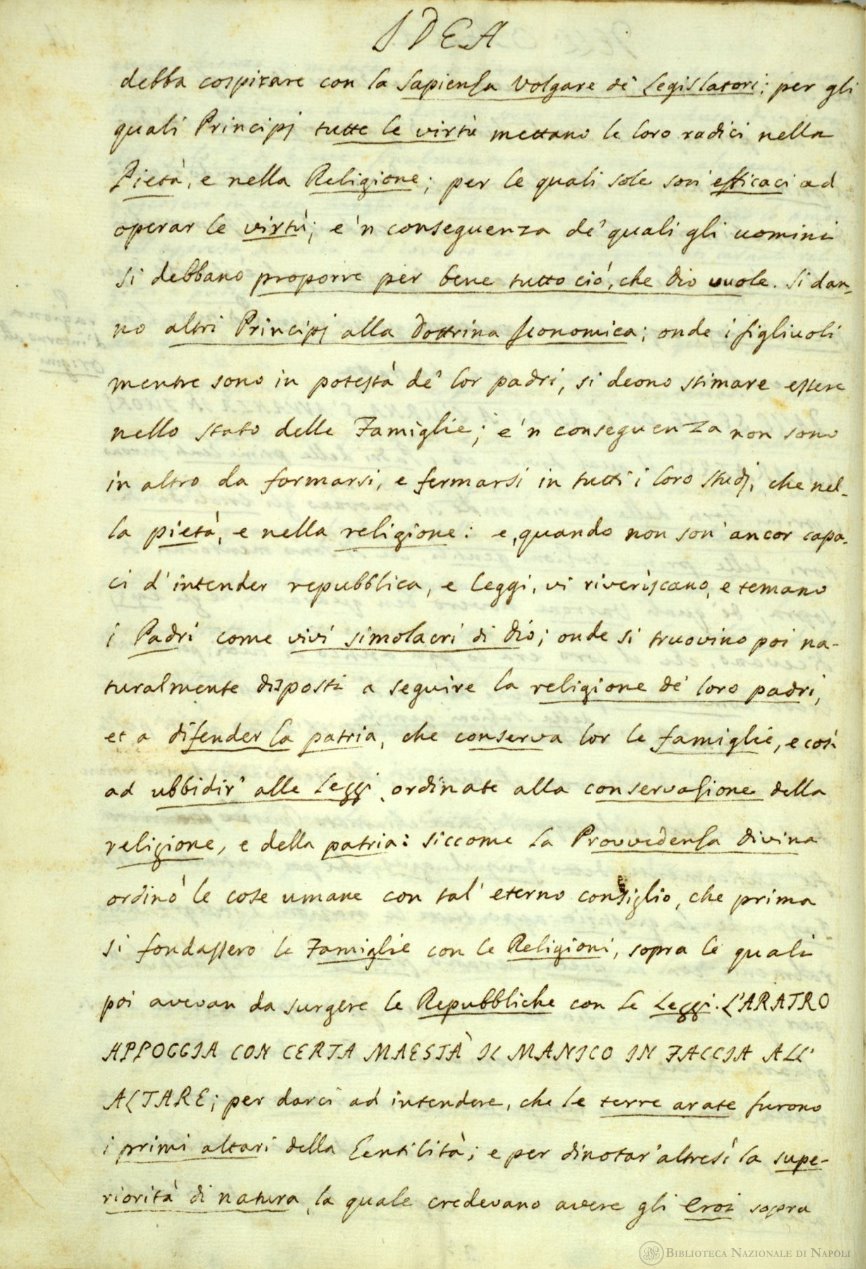 IDEA
debba cospirare con la Sapienza Volgare de' Legislatori; per gli
quali Principj tutte le virtù mettano le loro radici nella
Pietà, e nella Religione; per le quali sole son' efficaci ad
operar le virtù; e 'n conseguenza de' quali gli uomini
si debbano proporre per bene tutto ciò, che Dio vuole. Si dan-
no altri Principj alla Dottrina Iconomica; onde i figliuoli
mentre sono in potestà de' lor padri, si deono stimare essere
nello stato delle Famiglie; e 'n conseguenza non sono
in altro da formarsi, e fermarsi in tutti i loro studj, che nel-
la pietà, e nella religione: e, quando non son' ancor capa-
ci d' intender repubblica, e leggi, vi riveriscano, e temano
i Padri come vivi simolacri di Dio; onde si truovino poi na-
turalmente disposti a seguire la religione de' loro padri,
et a difender la patria, che conserva lor le famiglie, e così
ad ubbidir' alle Leggi, ordinate alla conservazione della
religione, e della patria: siccome la Provvedenza divina
ordinò le cose umane con tal' eterno consiglio, che prima
si fondassero le Famiglie con le Religioni, sopra le quali
poi avevan da surgere le Repubbliche con le Leggi. L'ARATRO
APPOGGIA CON CERTA MAESTÀ IL MANICO IN FACCIA ALL'
ALTARE; per darci ad intendere, che le terre arate furono
i primi altari della Gentilità; e per dinotar' altresì la supe-
riorità di natura, la quale credevano avere gli Eroi sopra
BIBLIOTECA NAZIONALE DI NAPOLI